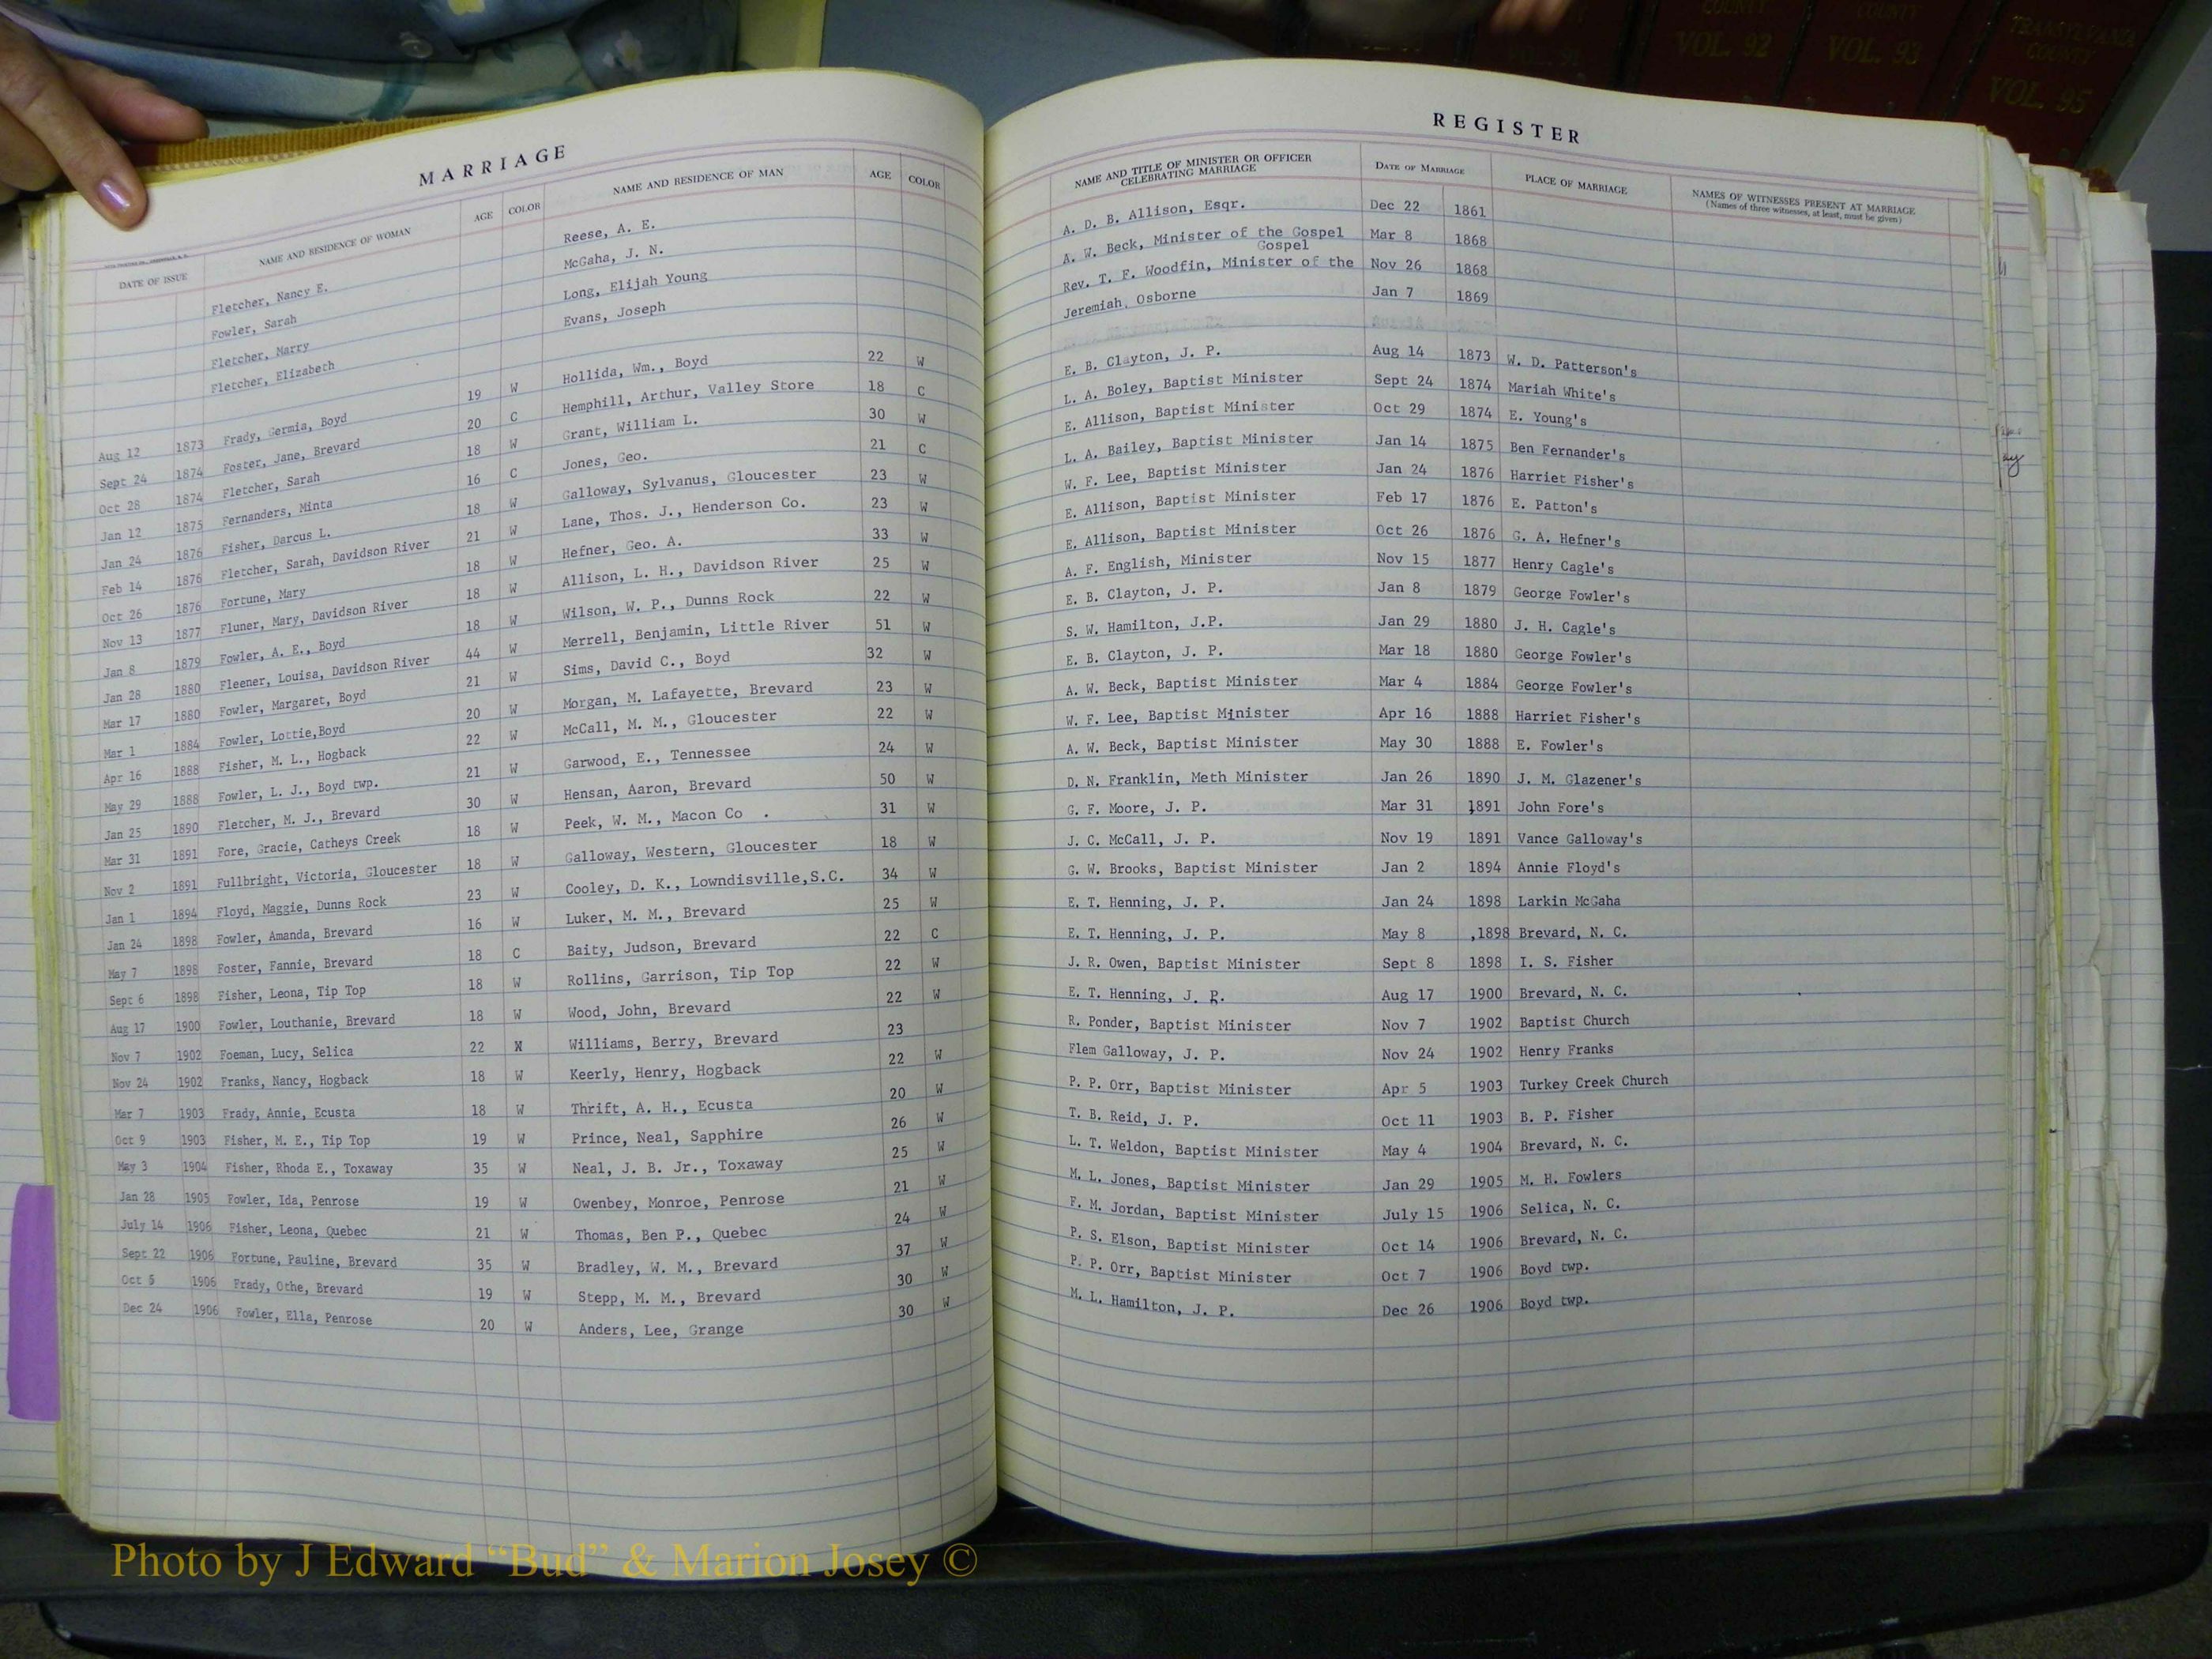 COUNTY
VOL. 92
COUNTY
VOL. 93
TRANSYLVANIA
COUNTY
VOL. 95
MARRIAGE
DATE OF ISSUE NAME AND RESIDENCE OF WOMAN AGE COLOR NAME AND RESIDENCE OF MAN AGE COLOR
Fletcher, Nancy E. Reese, A. E.
Fowler, Sarah McGaha, J. N.
Fletcher, Marry Long, Elijah Young
Fletcher, Elizabeth Evans, Joseph
Aug 12 1873 Frady, Germia, Boyd 19 W Hollida, Wm., Boyd 22 W
Sept 24 1874 Foster, Jane, Brevard 20 C Hemphill, Arthur, Valley Store 18 C
Oct 28 1874 Fletcher, Sarah 18 W Grant, William L. 30 W
Jan 12 1875 Fernanders, Minta 16 C Jones, Geo. 21 C
Jan 24 1876 Fisher, Darcus L. 18 W Galloway, Sylvanus, Gloucester 23 W
Feb 14 1876 Fletcher, Sarah, Davidson River 21 W Lane, Thos. J., Henderson Co. 23 W
Oct 26 1876 Fortune, Mary 18 W Hefner, Geo. A. 33 W
Nov 13 1877 Fluner, Mary, Davidson River 18 W Allison, L. H., Davidson River 25 W
Jan 8 1879 Fowler, A. E., Boyd 18 W Wilson, W. P., Dunns Rock 22 W
Jan 28 1880 Fleener, Louisa, Davidson River 44 W Merrell, Benjamin, Little River 51 W
Mar 17 1880 Fowler, Margaret, Boyd 21 W Sims, David C., Boyd 32 W
Mar 1 1884 Fowler, Lottie,Boyd 20 W Morgan, M. Lafayette, Brevard 23 W
Apr 16 1888 Fisher, M. L., Hogback 22 W McCall, M. M., Gloucester 22 W
May 29 1888 Fowler, L. J., Boyd twp. 21 W Garwood, E., Tennessee 24 W
Jan 25 1890 Fletcher, M. J., Brevard 30 W Hensan, Aaron, Brevard 50 W
Mar 31 1891 Fore, Gracie, Catheys Creek 18 W Peek, W. M., Macon Co . 31 W
Nov 2 1891 Fullbright, Victoria, Gloucester 18 W Galloway, Western, Gloucester 18 W
Jan 1 1894 Floyd, Maggie, Dunns Rock 23 W Cooley, D. K., Lowndisville,S.C. 34 W
Jan 24 1898 Fowler, Amanda, Brevard 16 W Luker, M. M., Brevard 25 W
May 7 1898 Foster, Fannie, Brevard 18 C Baity, Judson, Brevard 22 C
Sept 6 1898 Fisher, Leona, Tip Top 18 W Rollins, Garrison, Tip Top 22 W
Aug 17 1900 Fowler, Louthanie, Brevard 18 W Wood, John, Brevard 22 W
Nov 7 1902 Foeman, Lucy, Selica 22 W Williams, Berry, Brevard 23
Nov 24 1902 Franks, Nancy, Hogback 18 W Keerly, Henry, Hogback 22 W
Mar 7 1903 Frady, Annie, Ecusta 18 W Thrift, A. H., Ecusta 20 W
Oct 9 1903 Fisher, M. E., Tip Top 19 W Prince, Neal, Sapphire 26 W
May 3 1904 Fisher, Rhoda E., Toxaway 35 W Neal, J. B. Jr., Toxaway 25 W
Jan 28 1905 Fowler, Ida, Penrose 19 W Owenbey, Monroe, Penrose 21 W
July 14 1906 Fisher, Leona, Quebec 21 W Thomas, Ben P., Quebec 24 W
Sept 22 1906 Fortune, Pauline, Brevard 35 W Bradley, W. M., Brevard 37 W
Oct 5 1906 Frady, Othe, Brevard 19 W Stepp, M. M., Brevard 30 W
Dec 24 1906 Fowler, Ella, Penrose 20 W Anders, Lee, Grange 30 W
REGISTER
NAME AND TITLE OF MINISTER OR OFFICER CELEBRATING MARRIAGE DATE OF MARRIAGE PLACE OF MARRIAGE NAMES OF WITNESSES PRESENT AT MARRIAGE
(Names of three witnesses, at least, must be given)
A. D. B. Allison, Esqr. Dec 22 1861
A. W. Beck, Minister of the Gospel Mar 8 1868
Gospel
Rev. T. F. Woodfin, Minister of the Nov 26 1868
Jeremiah Osborne Jan 7 1869
E. B. Clayton, J. P. Aug 14 1873 W. D. Patterson's
L. A. Boley, Baptist Minister Sept 24 1874 Mariah White's
E. Allison, Baptist Minister Oct 29 1874 E. Young's
L. A. Bailey, Baptist Minister Jan 14 1875 Ben Fernander's
W. F. Lee, Baptist Minister Jan 24 1876 Harriet Fisher's
E. Allison, Baptist Minister Feb 17 1876 E. Patton's
E. Allison, Baptist Minister Oct 26 1876 G. A. Hefner's
A. F. English, Minister Nov 15 1877 Henry Cagle's
E. B. Clayton, J. P. Jan 8 1879 George Fowler's
S. W. Hamilton, J.P. Jan 29 1880 J. H. Cagle's
E. B. Clayton, J. P. Mar 18 1880 George Fowler's
A. W. Beck, Baptist Minister Mar 4 1884 George Fowler's
W. F. Lee, Baptist Minister Apr 16 1888 Harriet Fisher's
A. W. Beck, Baptist Minister May 30 1888 E. Fowler's
D. N. Franklin, Meth Minister Jan 26 1890 J. M. Glazener's
G. F. Moore, J. P. Mar 31 1891 John Fore's
J. C. McCall, J. P. Nov 19 1891 Vance Galloway's
G. W. Brooks, Baptist Minister Jan 2 1894 Annie Floyd's
E. T. Henning, J. P. Jan 24 1898 Larkin McGaha
E. T. Henning, J. P. May 8 ,1898 Brevard, N. C.
J. R. Owen, Baptist Minister Sept 8 1898 I. S. Fisher
E. T. Henning, J. P. Aug 17 1900 Brevard, N. C.
R. Ponder, Baptist Minister Nov 7 1902 Baptist Church
Flem Galloway, J. P. Nov 24 1902 Henry Franks
P. P. Orr, Baptist Minister Apr 5 1903 Turkey Creek Church
T. B. Reid, J. P. Oct 11 1903 B. P. Fisher
L. T. Weldon, Baptist Minister May 4 1904 Brevard, N. C.
M. L. Jones, Baptist Minister Jan 29 1905 M. H. Fowlers
F. M. Jordan, Baptist Minister July 15 1906 Selica, N. C.
P. S. Elson, Baptist Minister Oct 14 1906 Brevard, N. C.
P. P. Orr, Baptist Minister Oct 7 1906 Boyd twp.
M. L. Hamilton, J. P. Dec 26 1906 Boyd twp.
Photo by J Edward “Bud” & Marion Josey ©